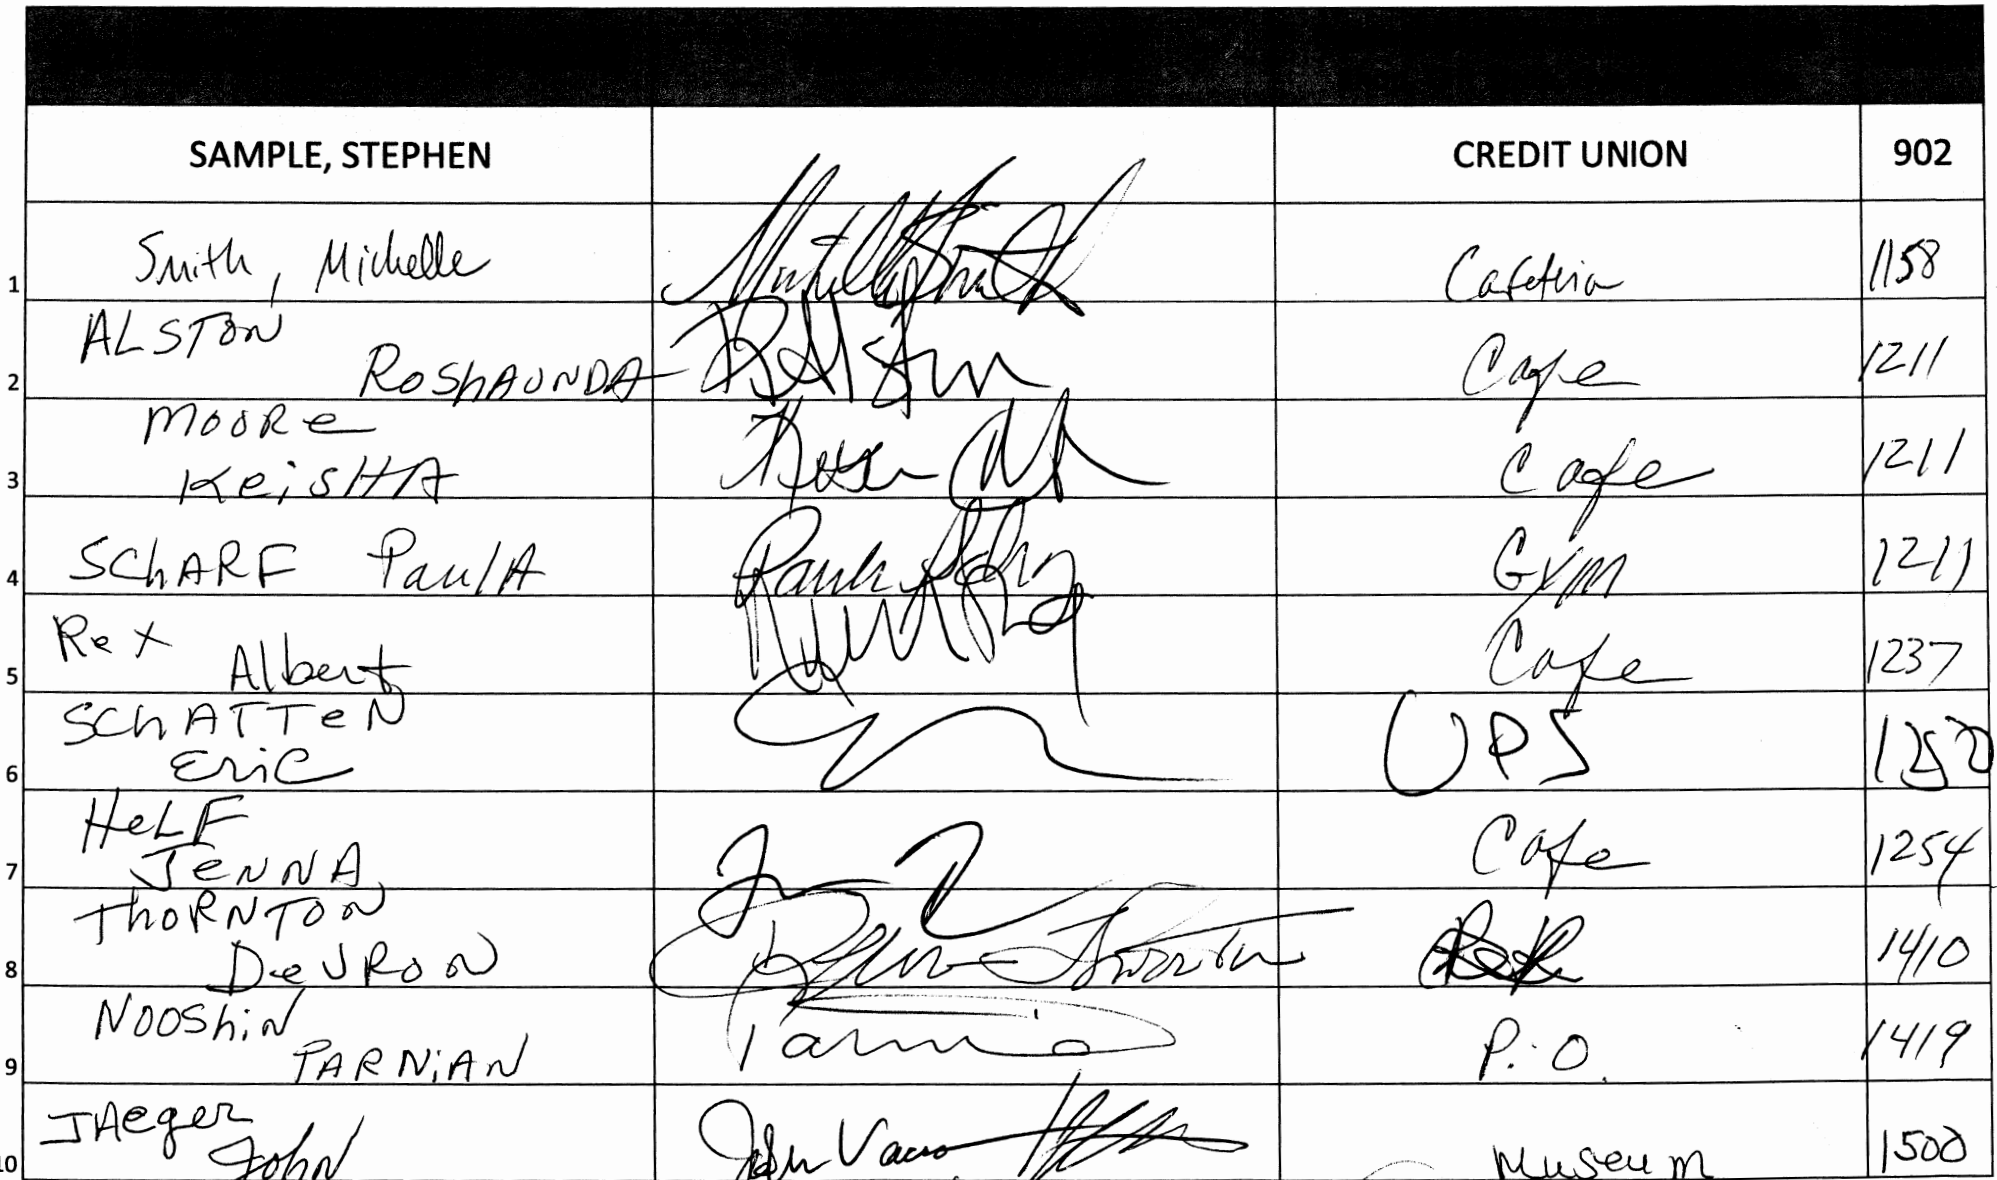 SAMPLE, STEPHEN CREDIT UNION 902
1 Smith, Michelle Michelle Smith Cafeteria 1158
ALSTON
2 ROShAUNDA Cafe 1211
MOORe
3 KeisHA Cafe 1211
4 SChARF PaulA Gym 1211
Rex
5 Albert Cafe 1237
SChATTeN
6 EriC UPS
HeLF
7 JeNNA Cafe 1254
ThORNTON
8 DeVRON 1410
NOOShiN
9 PARNiAN P.O. 1419
JAeger
10 John Museum 1500